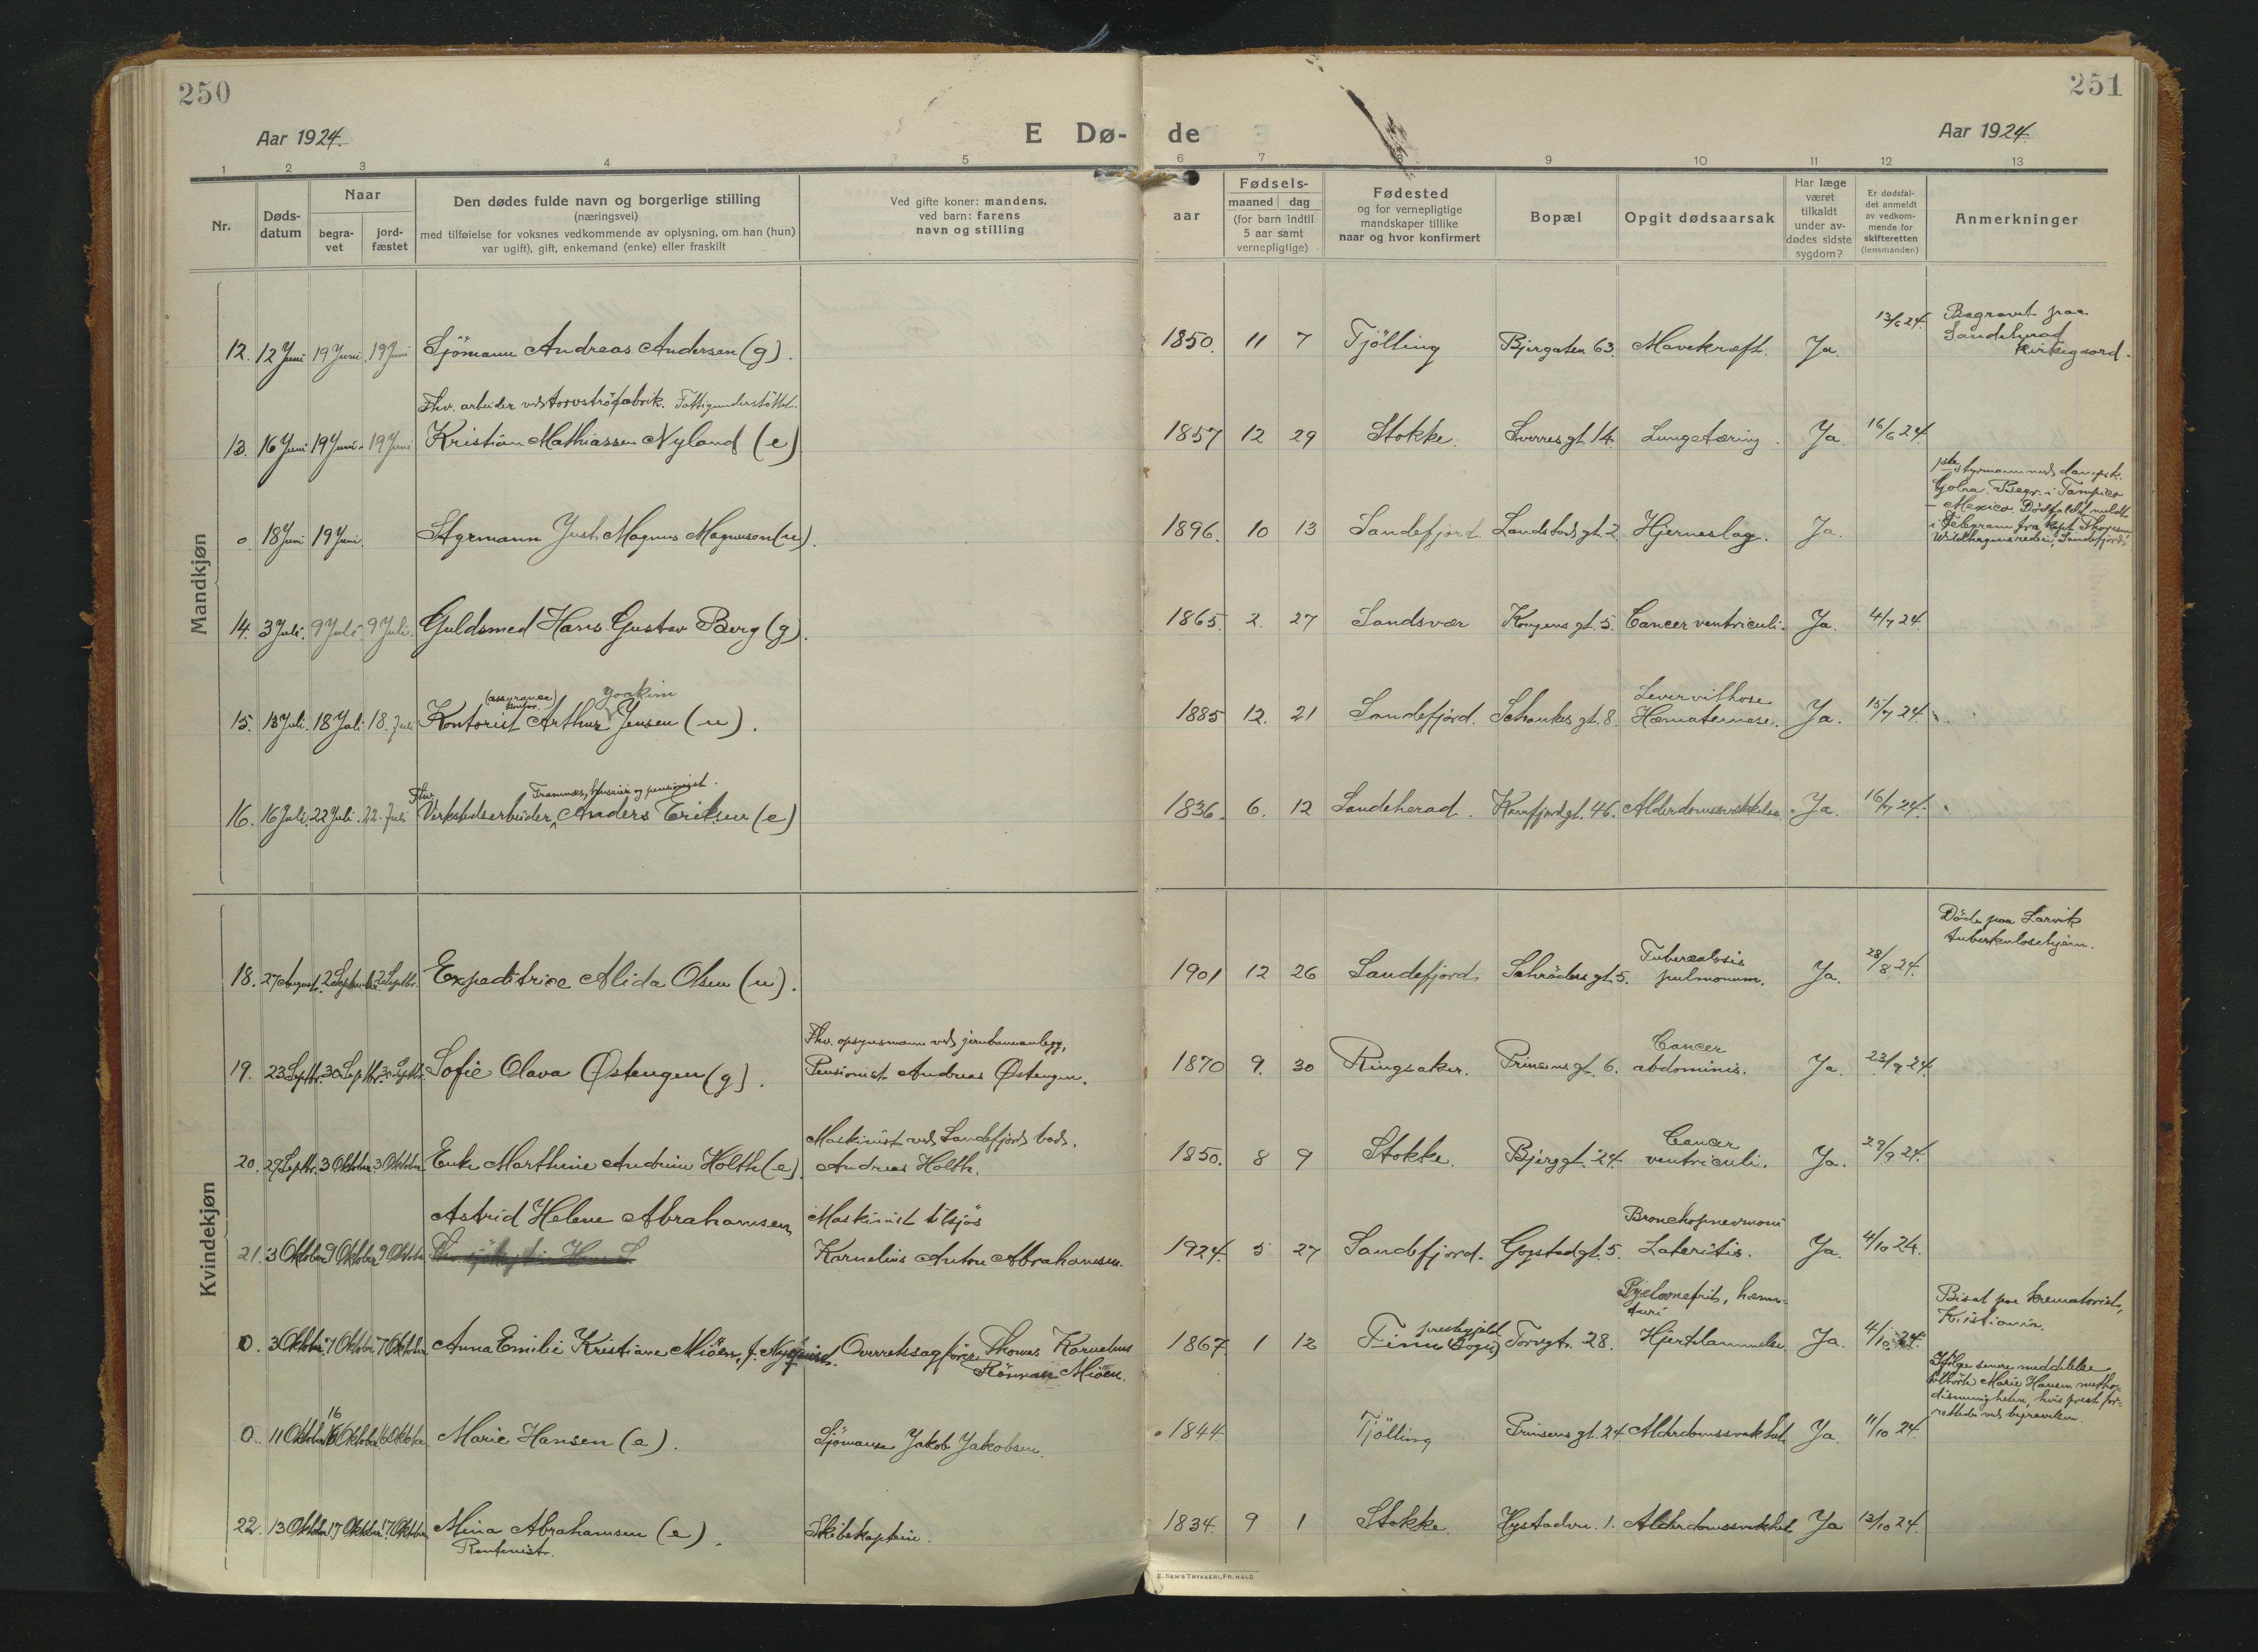 250
251
Aar 1924.
E Dø-
de
Aar 1924.
1 2 3 4 5 6 7 9 10 11 12 13
Nr.
Døds-
datum
Naar
begra-
vet
jord-
fæstet
Den dødes fulde navn og borgerlige stilling
(næringsvei)
med tilføielse for voksnes vedkommende av oplysning, om han (hun)
var ugift), gift, enkemand (enke) eller fraskilt
Ved gifte koner: mandens,
ved barn: farens
navn og stilling
aar
Fødsels-
maaned dag
(for barn indtil
5 aar samt
vernepligtige)
Fødested
og for vernepligtige
mandskaper tillike
naar og hvor konfirmert
Bopæl
Opgit dødsaarsak
Har læge
været
tilkaldt
under av-
dødes sidste
sygdom?
Er dødsfal-
det anmeldt
av vedkom-
mende for
skifteretten
(lensmanden)
Anmerkninger
Mandkjøn
12. 12 Juni 19 Juni. 19 Juni Sjömann Andreas Andersen (g). 1850. 11 7 Tjölling Bjergaten 63. Mavekræft. Ja. 13/6 24.
Begravet paa
Sandeherad
kirkegaard.
Fhv. arbeider ved torvströfabrik. Fattigunderstöttet.
13. 16 Juni 19 Juni. 19 Juni Kristian Mathiassen Nyland (e) 1857 12 29 Stokke. Sverres gt. 14. Lungetæring. Ja. 16/6 24.
0 18 Juni 19 Juni. Styrmann Just Magnus Magnusen (u). 1896. 10 13 Sandefjord. Landstads gt. 2. Hjerneslag. Ja.
1ste styrmann ved dampsk.
Golaa. Begr. i Tampico
– Mexico. Dödsfaldet meldt
i Telegram fra kapt.
rederi, Sandefjord.
14. 3 Juli. 9 Juli 9 Juli. Guldsmed Hans Gustav Berg (g). 1865. 2. 27 Sandsvær Kongens gt. 5. Cancer ventriculi. Ja. 4/7 24.
(assurance
kontor.) Joakim
15. 13 Juli. 18 Juli 18. Juli Kontorist Arthur Jensen (u). 1885 12. 21 Sandefjord. Schankes gt. 8. Hæmatemese. Ja. 15/7 24.
Fhv. Framnæs, huseier og pensionist.
16. 16 Juli. 22 Juli. 22. Juli Verkstedsarbeider, Anders Eriksen (e) 1836. 6. 12 Sandeherad. Kamfjordgt. 46. Alderdomssvækkelse. Ja. 16/7 24.
Kvindekjøn
18. 27 August. 2 September. 2 Septbr. Expeditrice Alida Olsen (u). 1901 12 26 Sandefjord Schröders gt. 5. Tuberculosis
pulmonum. Ja. 28/8 24.
Döde paa Larvik
tuberkulosehjem.
Fhv. opsynsmann ved jernbaneanlegg,
19. 23 Septbr. 30 Septbr. 30 Septbr. Sofie Olava Østengen (g). Pensionist Andreas Østengen. 1870 9. 30 Ringsaker. Prinsens gt. 6. Cancer
abdominis. Ja. 23/9 24.
Maskinist ved Sandefjords bad.
20. 29 Septbr. 3 Oktober 3 Oktober Enke Marthine Andrine Holth (e). Andreas Holth. 1850. 8 9 Stokke. Bjerggt. 24. Cancer
ventriculi. Ja. 29/9 24.
Astrid Helene Abrahamsen Maskinist tilsjös
21. 3 Oktober 9 Oktober 9 Oktober Karnelius Anton Abrahamsen. 1924. 5 27 Sandefjord. Gogstadgt. 5. Bronchopnevmoni
Ja. 4/10 24.
0. 3 Oktober. 7 Oktober 7 Oktober Anna Emilie Kristiane Miöen, f. Nyquist. Overretssagförer Thomas Karnelius
Rönnau Miöen. 1867. 1 12 Finn Torvgt. 28. Pyelonefrit, hæma-
turi
Hjertelammelse Ja. 4/10 24.
Bisat paa krematoriet,
Kristiania.
0. 11 Oktober 16 Oktober 16 Oktober Marie Hansen (e). Sjömann Jakob Jakobsen. 1844 Tjölling Prinsens gt. 24. Alderdomssvakhet Ja. 11/10 24.
Ifölge senere meddelelse
tilhörte Marie Hansen metho-
distmenigheten, hvis prest for-
rettedes ved begravelsen.
22. 13 Oktober 17 Oktober. 17 Oktober Mina Abrahamsen (e). Skibskaptein. 1834. 9 1 Stokke. Hystadvn. 1. Alderdomssvakhet Ja 13/10 24.
Rentenist.
E. SEM'S TRYKKERI, FR.HALD